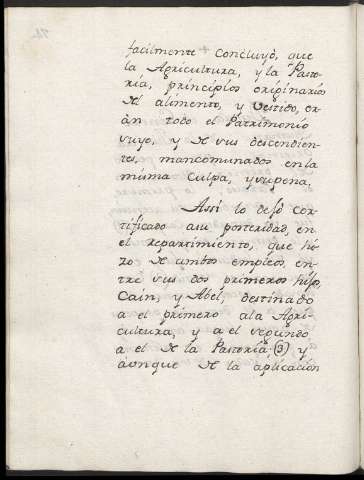 facilmente + concluyò, que
la Agricultura, y la Pasto-
ría, principios originarios
de el alimento, y vestido, er-
àn todo el Patrimonio
suyo, y de sus descendien-
tes, mancomunados en la
misma culpa, y su pena.
Assi lo dejò cer-
tificado a su posteridad, en
el repartimiento, que hi-
zo de ambos empleos, en-
tre sus dos primeros hijos,
Cain, y Abel, destinado
a el primero a la Agri-
cultura, y a el segundo
a el de la Pastoría, (3) y
aunque de la aplicación